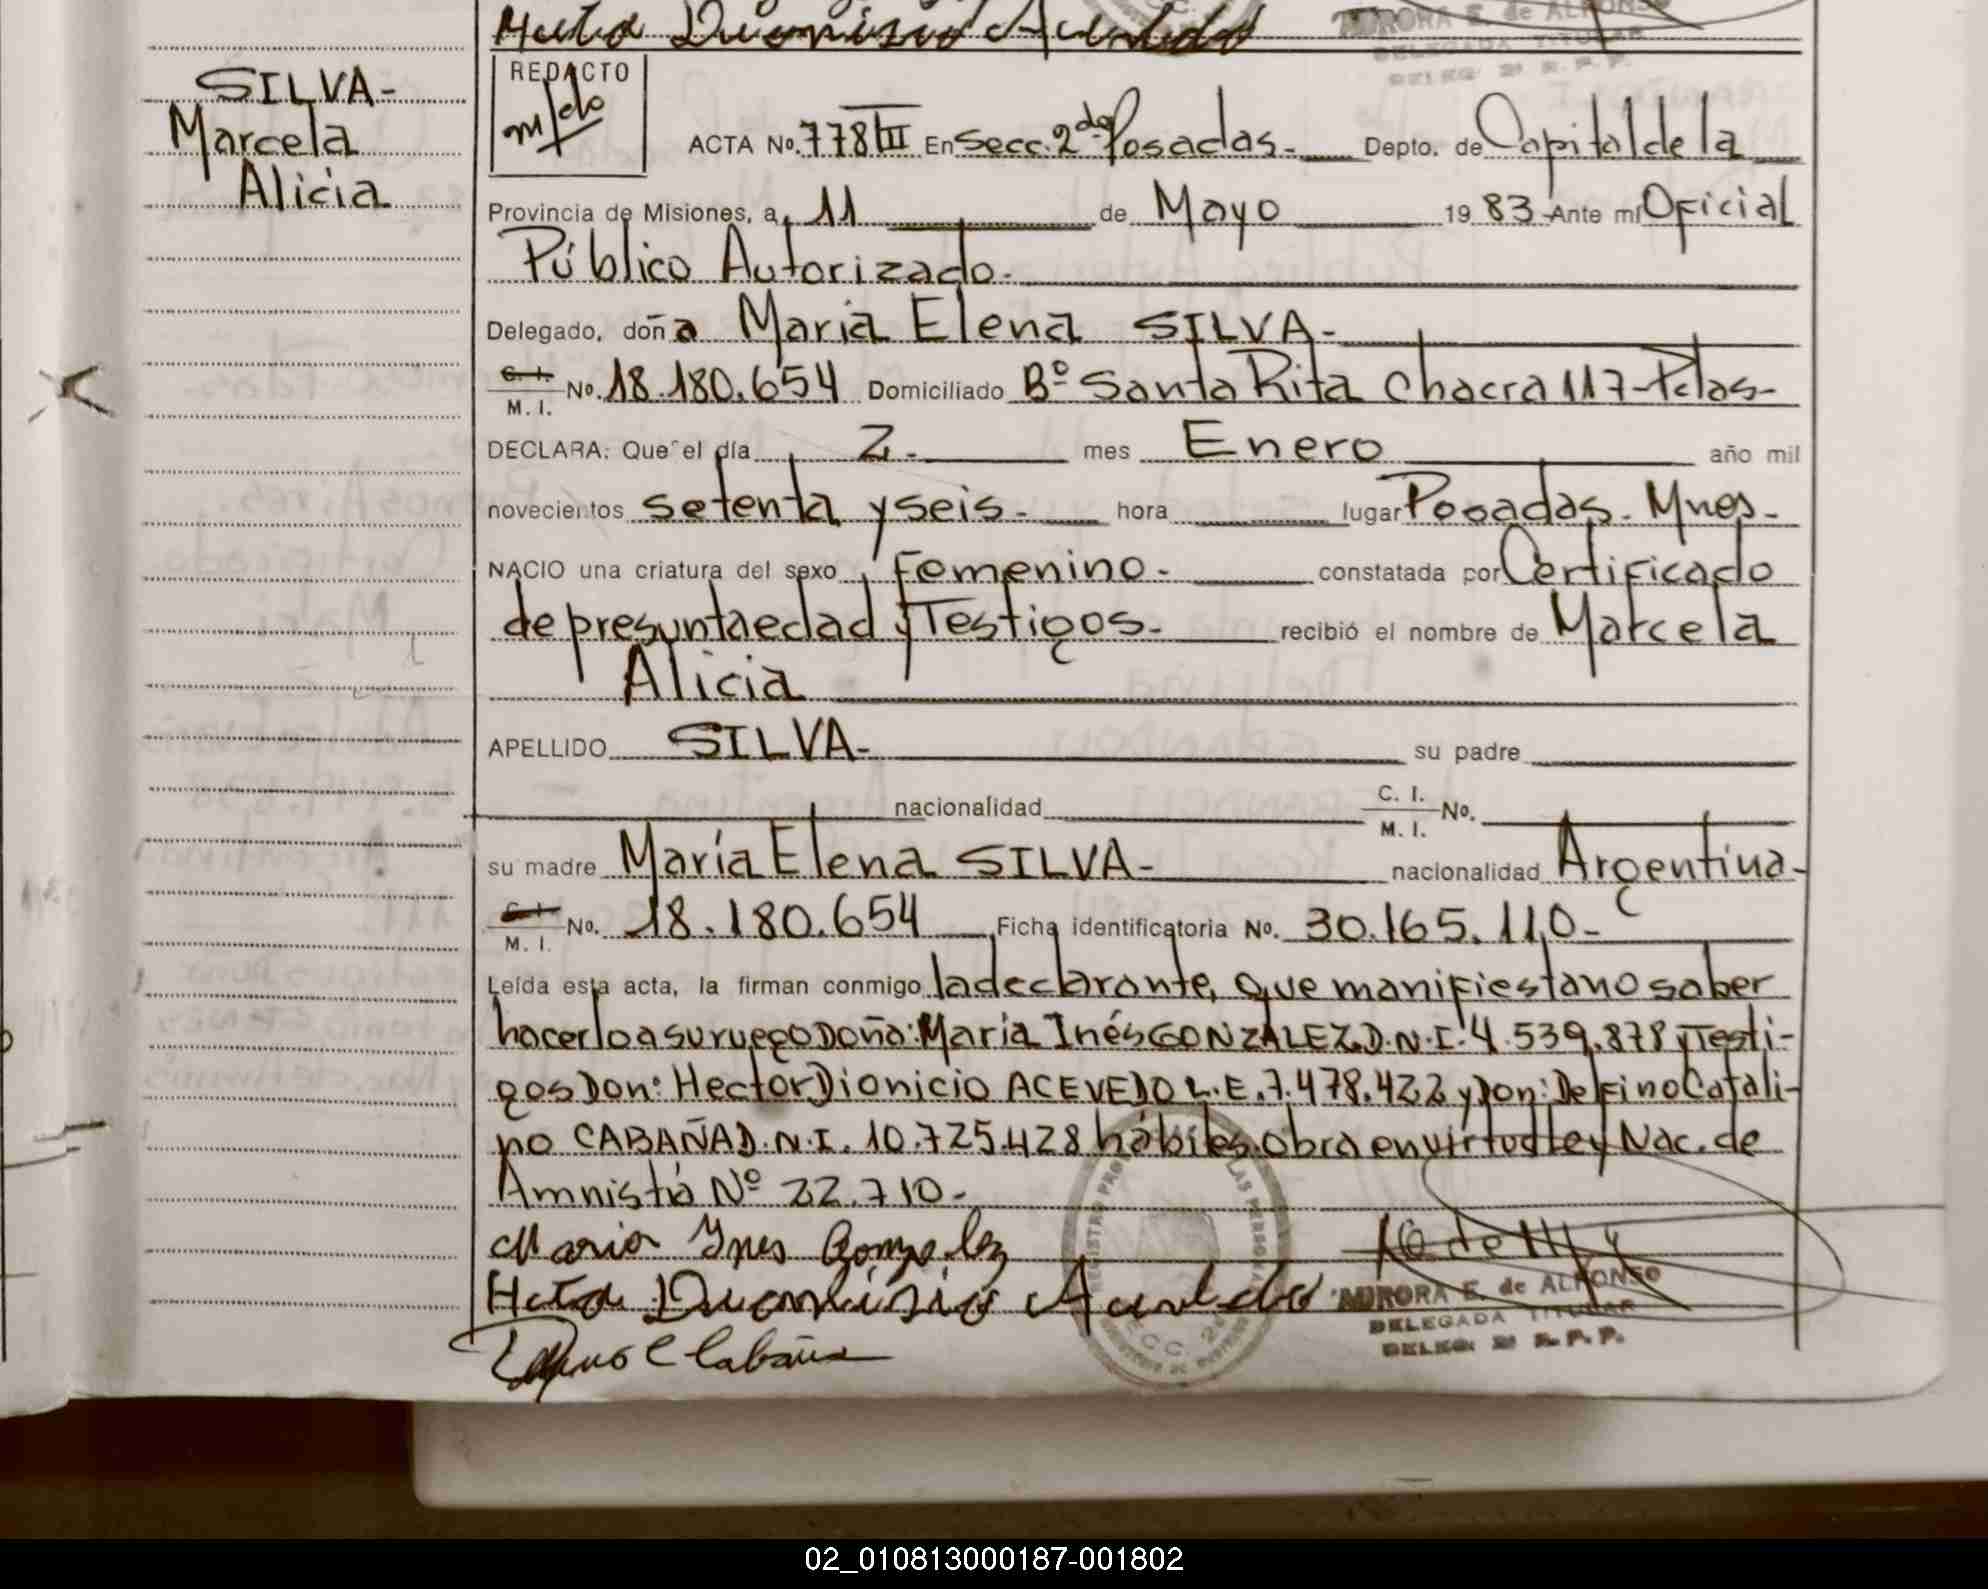 AURORA E. de ALFONSO
DELEGADA TITULAR
DELEG. 2ª R.P.P.
SILVA-
Marcela
Alicia
REDACTO
ACTA No. 778 T III En Secc. 2da Posadas.- Depto. de Capital de la
Provincia de Misiones, a 11 de Mayo 19 83 Ante mí Oficial
Público Autorizado.
Delegado, doña María Elena SILVA-
C. I. M. I. No. 18.180.654 Domiciliado Bº Santa Rita Chacra 117-Pdas-
DECLARA: Que el día 2.- mes Enero año mil
novecientos setenta y seis.- hora lugar Posadas. Mnes-
NACIO una criatura del sexo Femenino.- constatada por Certificado
de presunta edad y Testigos.- recibió el nombre de Marcela
Alicia
APELLIDO SILVA- su padre
nacionalidad C. I. M. I. No.
su madre María Elena SILVA- nacionalidad Argentina-
C. I. M. I. No. 18.180.654 Ficha identificatoria No. 30.165.110-
Leída esta acta, la firman conmigo la declarante, que manifiesta no saber
hacerlo a su ruego Doña: María Inés GONZALEZ D.N.I. 4.539.878 y Testi-
gos Don: Hector Dionicio ACEVEDO L.E. 7.478.422 y Don: Delfino Catali-
no CABAÑA D.N.I. 10.725.428 hábiles. Obra en virtud Ley Nac. de
Amnistía Nº 22.710-
Maria Ynes Gonzalez
AURORA E. de ALFONSO
DELEGADA TITULAR
DELEG. 2ª R.P.P.
02_010813000187-001802